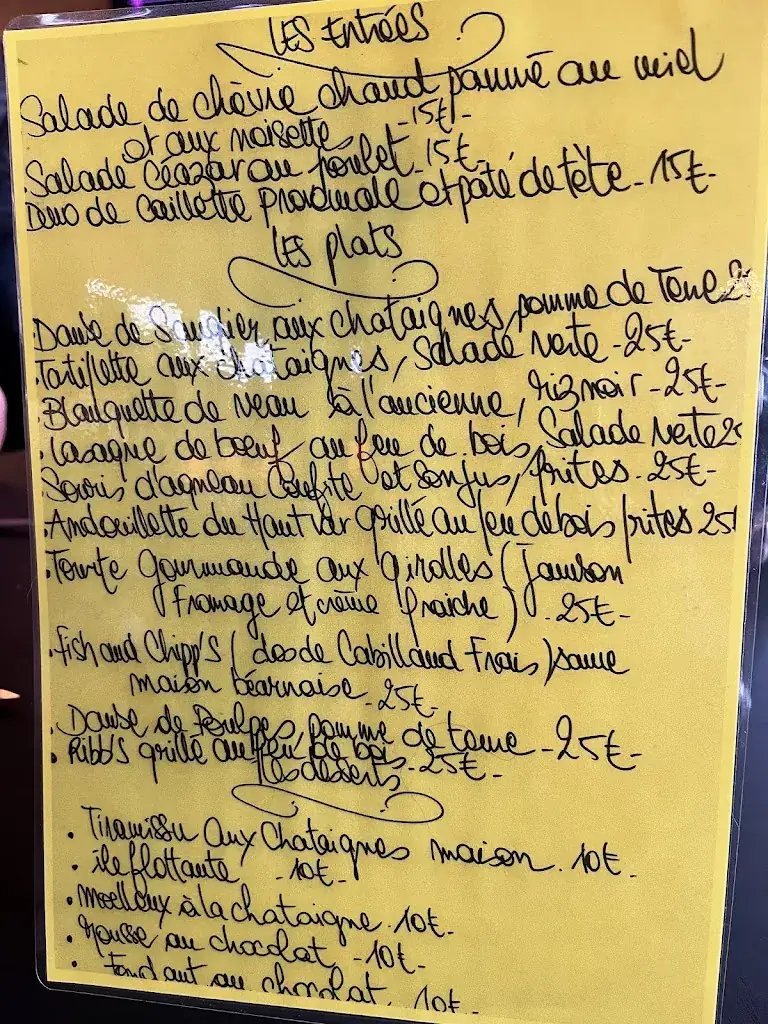 LES Entrées
Salade de chèvre chaud panné au miel
et aux noisette -15€-
.Salade Céazar au poulet 15€
Duo de caillette provençale et pâté de tête - 15€-
LES plats
.Daube de Sanglier aux chataignes, pomme de Terre 2
.Tartiflette aux chataignes, Salade verte - 25€-
.Blanquette de veau à l'ancienne, riz noir - 25€-
.Lasagne de boeuf au feu de bois, Salade verte 2
.Souris d'agneau Confite et son jus, frites - 25€-
.Andouillette du Haut Var grillé au feu de bois frites 25
.Tourte gourmande aux girolles (Jambon
Fromage et crème fraiche) - 25€-
.Fish and Chipp's (dos de Cabillaud Frais) sauce
maison béarnaise - 25€-
.Daube de Poulpes, pomme de terre - 25€-
.Ribb's grillé au feu de bois - 25€-
Les desserts
.Tiramissu aux Chataignes maison. 10€-
.île flottante -10€-
.Moelleux à la chataigne. 10€-
.Mousse au chocolat -10€-
.Fondant au chocolat. 10€-